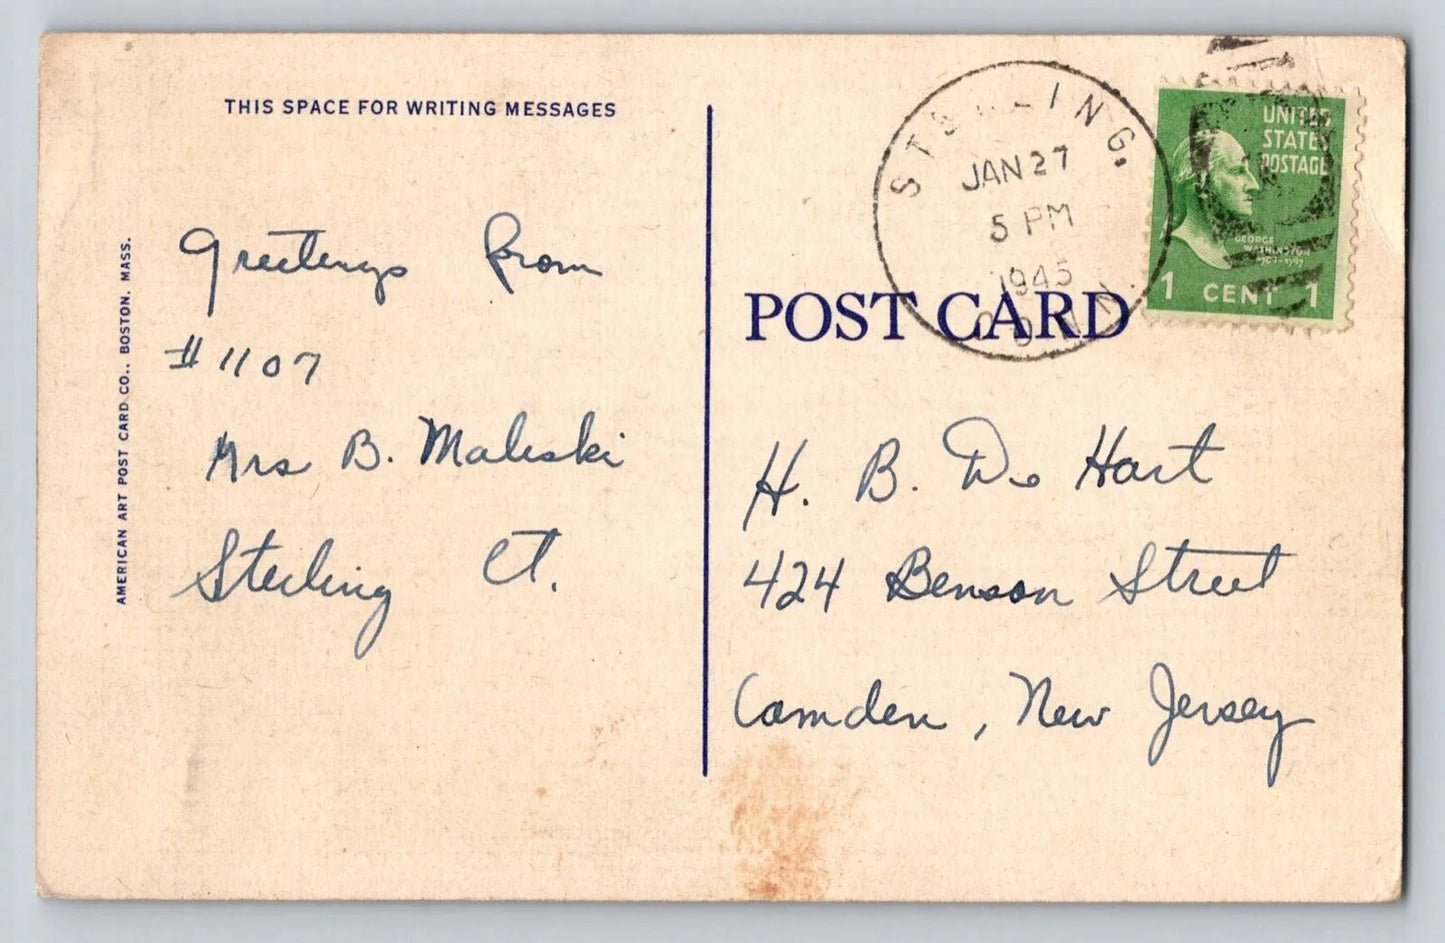 THIS SPACE FOR WRITING MESSAGES
Greetings from
#1107
Mrs B. Maleski
Sterling Ct.
AMERICAN ART POST CARD CO., BOSTON, MASS.
STERLING,
JAN 27
5 PM
1945
CONN.
UNITED
STATES
POSTAGE
GEORGE
WASHINGTON
1 CENT 1
POST CARD
H. B. De Hart
424 Benson Street
Camden, New Jersey